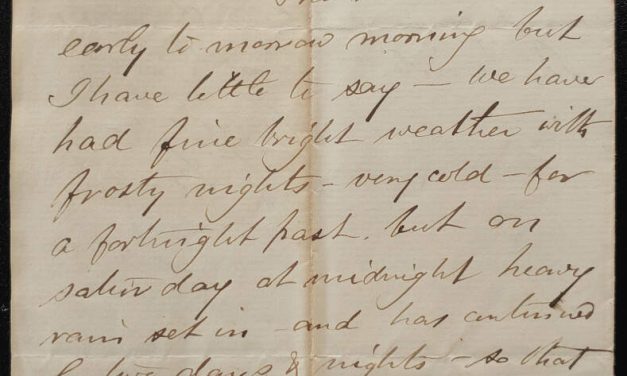 early to morrow morning but
I have little to say – we have
had fine bright weather with
frosty nights – very cold – for
a fortnight past. but on
saturday at midnight heavy
rain set in – and has continued
two days & nights – so that